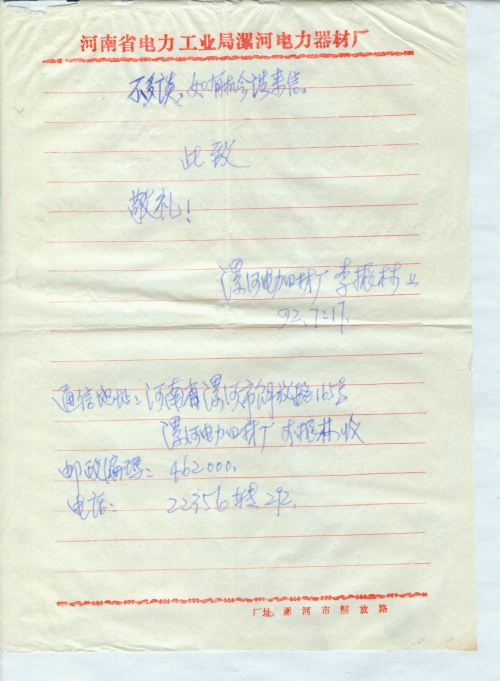 河南省电力工业局漯河电力器材厂
不多谈，如有机会谈来信。
此致
敬礼！
漯河电力四材厂 李振林上
92.7.17.
通信地址：河南省漯河市解放路165号
漯河电力四材厂 李振林收
邮政编码：462000.
电话：22356转292.
厂址：漯河市解放路